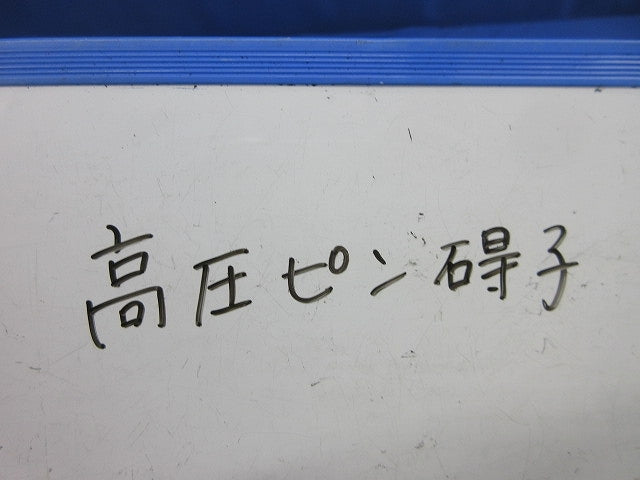 高圧ピン碍子